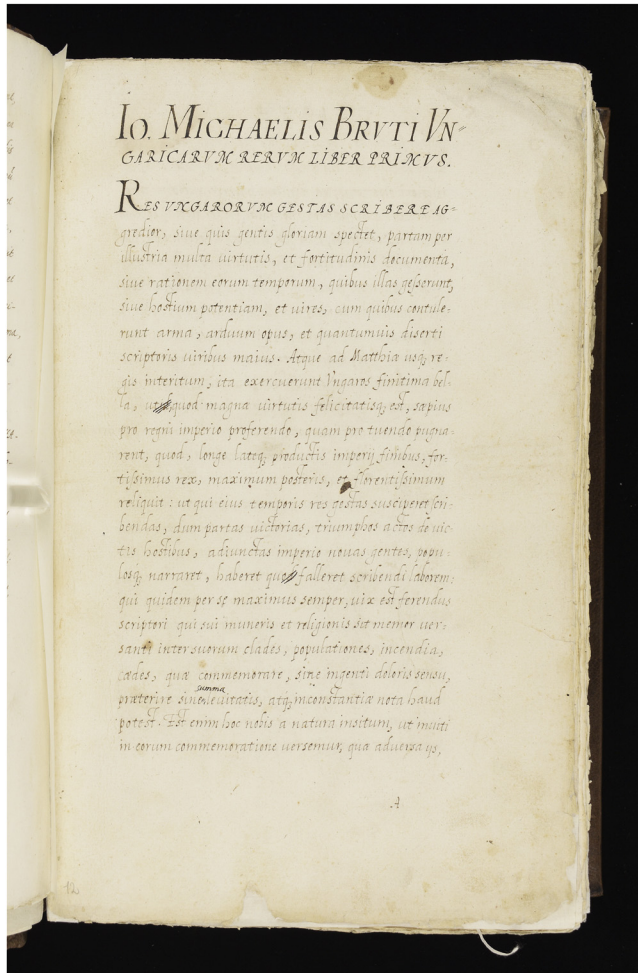 IO. MICHAELIS BRVTI VN-
GARICARVM RERVM LIBER PRIMVS.
RES VNGARORVM GESTAS SCRIBERE AG-
gredior, siue quis gentis gloriam spectet, partam per
illustria multa uirtutis, et fortitudinis documenta,
siue rationem eorum temporum, quibus illas gesserunt,
siue hostium potentiam, et uires, cum quibus contule-
runt arma, arduum opus, et quantumuis diserti
scriptoris uiribus maius. Atque ad Matthiæ usq; re-
gis interitum, ita exercuerunt Vngaros finitima bel-
la, ut quod magnæ uirtutis felicitatisq; est, sæpius
pro regni imperio proferendo, quam pro tuendo pugna-
rent, quod, longe lateq; productis imperij finibus, for-
tissimus rex, maximum posteris, et florentissimum
reliquit: ut qui eius temporis res gestas susciperet scri-
bendas, dum partas uictorias, triumphos actos de uic-
tis hostibus, adiunctas imperio nouas gentes, popu-
losq; narraret, haberet quo falleret scribendi laborem:
qui quidem per se maximus semper, uix est ferendus
scriptori qui sui muneris et religionis sit memor uer-
santi inter suorum clades, populationes, incendia,
cædes, quæ commemorare, sine ingenti doloris sensu,
præterire sine summa leuitatis, atq; inconstantiæ nota haud
potest. Est enim hoc nobis a natura insitum, ut inuiti
in eorum commemoratione uersemur, quæ aduersa ijs,
A
12